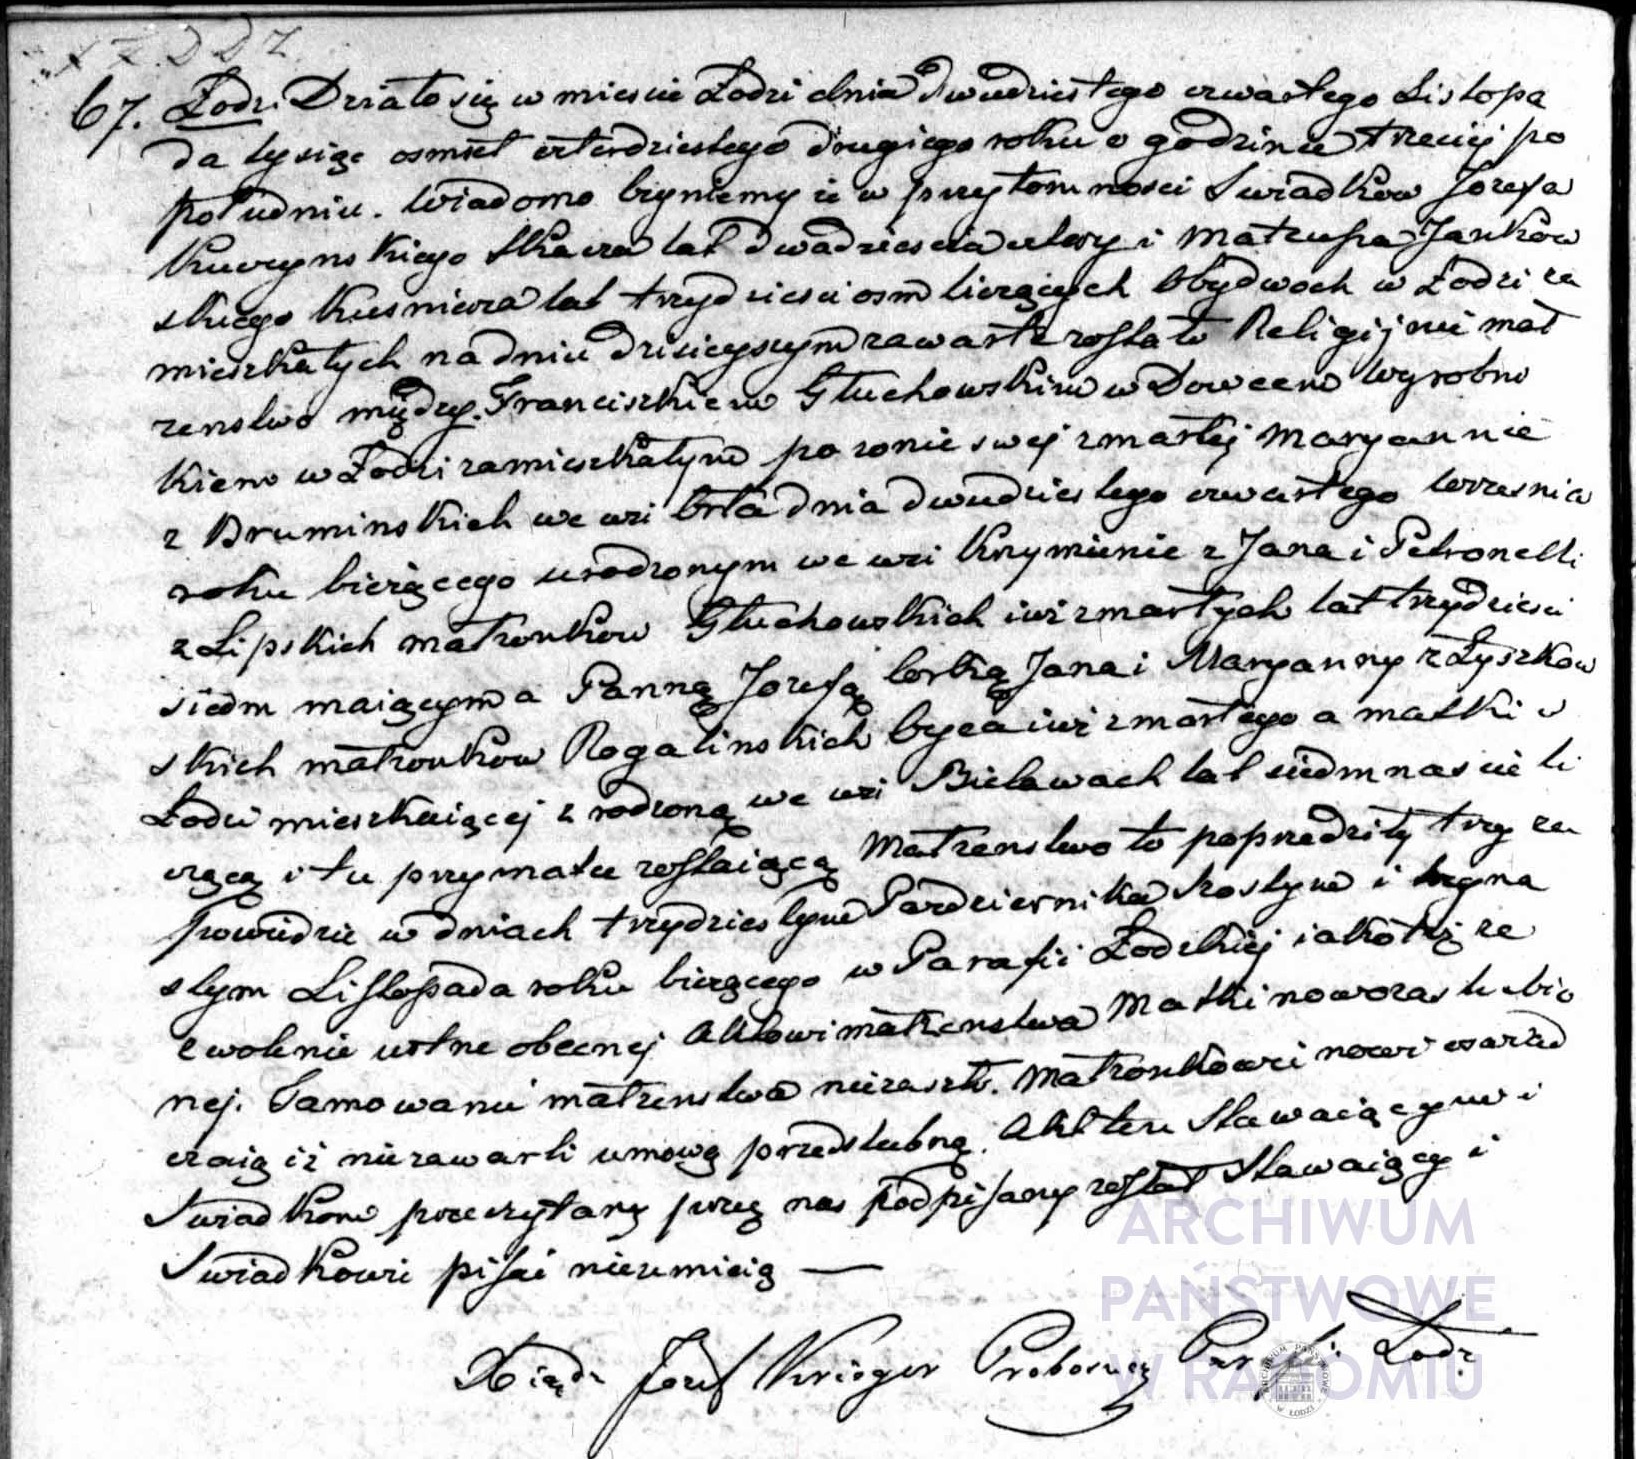 67. Łodz. Działo się w mieście Łodzi dnia dwudziestego czwartego Listopa
da tysiąc osmset czterdziestego drugiego roku o godzinie trzeciej po
południu. Wiadomo czyniemy iż w przytomności Swiadkow Jozefa
Kuczynskiego tkacza lat dwadziescia cztery i Mateusza Jankow
skiego Kusnierza lat trzydziesci osm liczących obydwoch w Łodzi za
mieszkałych na dniu dzisieyszym zawarte zostało Religijnie mał
zenstwo między Franciszkiem Głuchowskim w Dowcem wyrobni
kiem w Łodzi zamieszkałym po zonie swej zmarłej Maryannie
z Bruminskich we wsi dnia dwudziestego czwartego Wrzesnia
roku bieżącego urodzonym we wsi Krzymienie z Jana i Petronelli
z Lipskich małżonkow Głuchowskich iuż zmarłych lat trzydziesci
siedm maiącym a Panną Jozefą Corką Jana i Maryanny z Łyszkow
skich małżonkow Rogalinskich oyca iuż zmarłego a matki w
Łodzi mieszkaiącej zrodzoną we wsi Bielawach lat siedmnascie li
czącą i tu przy matce zostaiącą Małżenstwo to poprzedziły trzy za
powiedzie w dniach trzydziestym Pazdziernika szostym i trzyna
stym Listopada roku bieżącego w Parafii Łodzkiej iakoteż ze
zwolenie ustne obecnej Aktowi małżenstwa Matki nowozaslubio
nej. Tamowanie małżenstwa niezaszło. Małżonkowie nowi oswiad
czaią iż niezawarli umowy przedslubnej. Akt ten Stawaiącym i
Swiadkom przeczytany przez nas podpisany został Stawaiący i
Swiadkowie pisać nieumieią —
Xiądz Jozef Krieger Proboszcz Parafii Łodz.
ARCHIWUM
PAŃSTWOWE
W RADOMIU
ARCHIWUM PAŃSTWOWE W ŁODZI